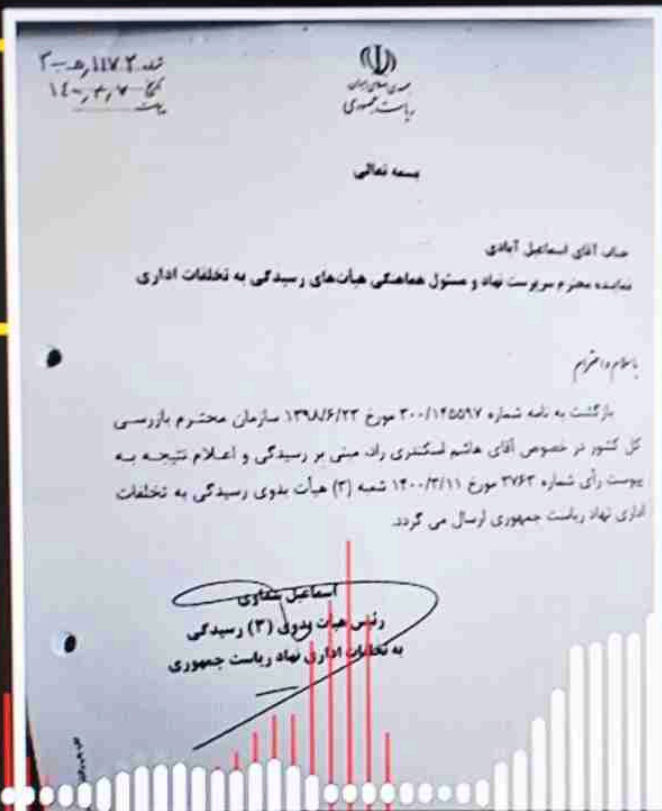 شماره ۱۱۷۰۲/هـ-۳
تاریخ ۱۴۰۰/۳/۷
جمهوری اسلامی ایران
ریاست جمهوری
بسمه تعالی
جناب آقای اسماعیل آبادی
نماینده محترم سرپرست نهاد و مسئول هماهنگی هیأت‌های رسیدگی به تخلفات اداری
باسلام و احترام
بازگشت به نامه شماره ۳۰۰/۱۴۵۵۹۷ مورخ ۱۳۹۸/۶/۲۳ سازمان محترم بازرسی
کل کشور در خصوص آقای هاشم اسکندری راد، مبنی بر رسیدگی و اعلام نتیجه به
پیوست رأی شماره ۳۷۶۳ مورخ ۱۴۰۰/۳/۱۱ شعبه (۳) هیأت بدوی رسیدگی به تخلفات
اداری نهاد ریاست جمهوری ارسال می گردد.
اسماعیل
رئیس هیأت بدوی (۳) رسیدگی
به تخلفات اداری نهاد ریاست جمهوری